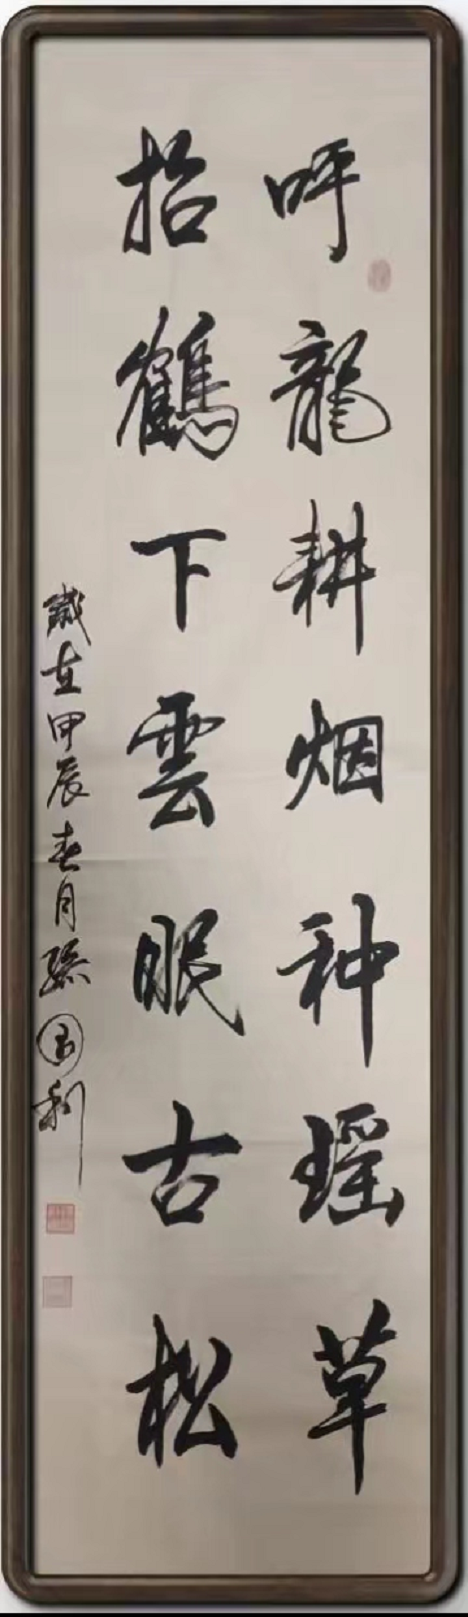 呼龍耕烟种瑶草
招鶴下雲眠古松
歲在甲辰春月孫國利